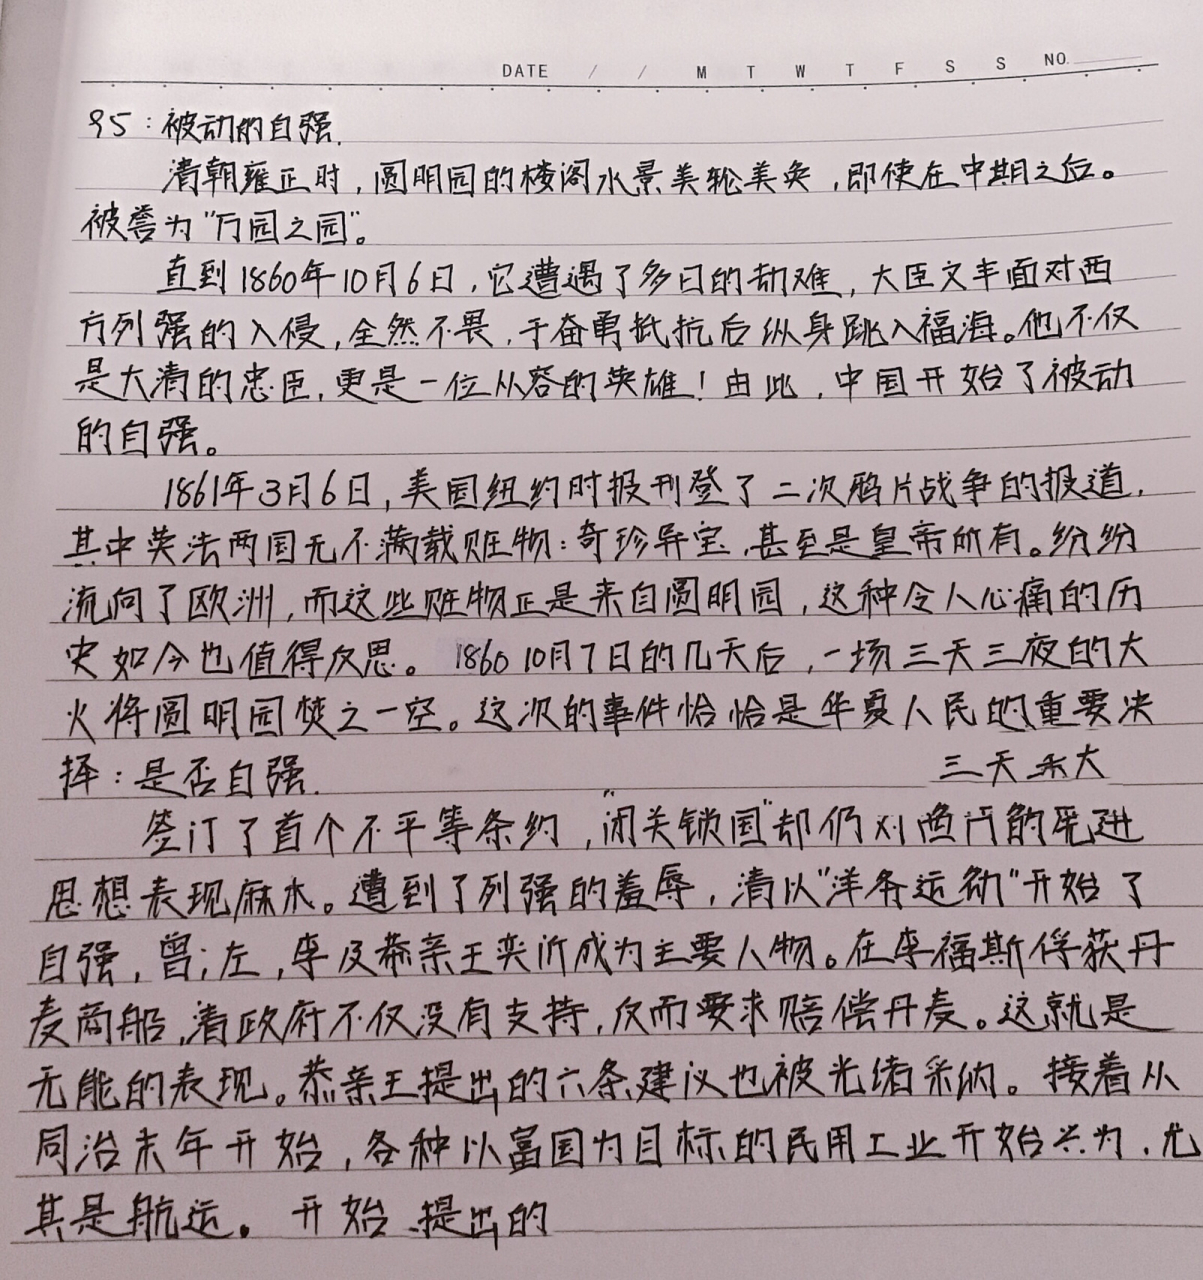 DATE / / M T W T F S S NO.
95：被动的自强.
清朝雍正时，圆明园的楼阁水景美轮美奂，即使在中期之后。
被誉为"万园之园"。
直到1860年10月6日，它遭遇了多日的劫难，大臣文丰面对西
方列强的入侵，全然不畏，于奋勇抵抗后纵身跳入福海。他不仅
是大清的忠臣，更是一位从容的英雄！由此，中国开始了被动
的自强。
1861年3月6日，美国纽约时报刊登了二次鸦片战争的报道，
其中英法两国无不满载赃物：奇珍异宝，甚至是皇帝所有。纷纷
流向了欧洲，而这些赃物正是来自圆明园，这种令人心痛的历
史如今也值得反思。1860 10月7日的几天后，一场三天三夜的大
火将圆明园焚之一空。这次的事件恰恰是华夏人民的重要决
择：是否自强.
三天 大
签订了首个不平等条约，"闭关锁国"却仍对澳门的先进
思想表现麻木。遭到了列强的羞辱，清以"洋务运动"开始了
自强，曾；左，李及恭亲王奕䜣成为主要人物。在李福斯俘获丹
麦商船，清政府不仅没有支持，反而要求赔偿丹麦。这就是
无能的表现。恭亲王提出的六条建议也被光绪采纳。接着从
同治末年开始，各种以富国为目标的民用工业开始兴为，尤
其是航运。开始 提出的